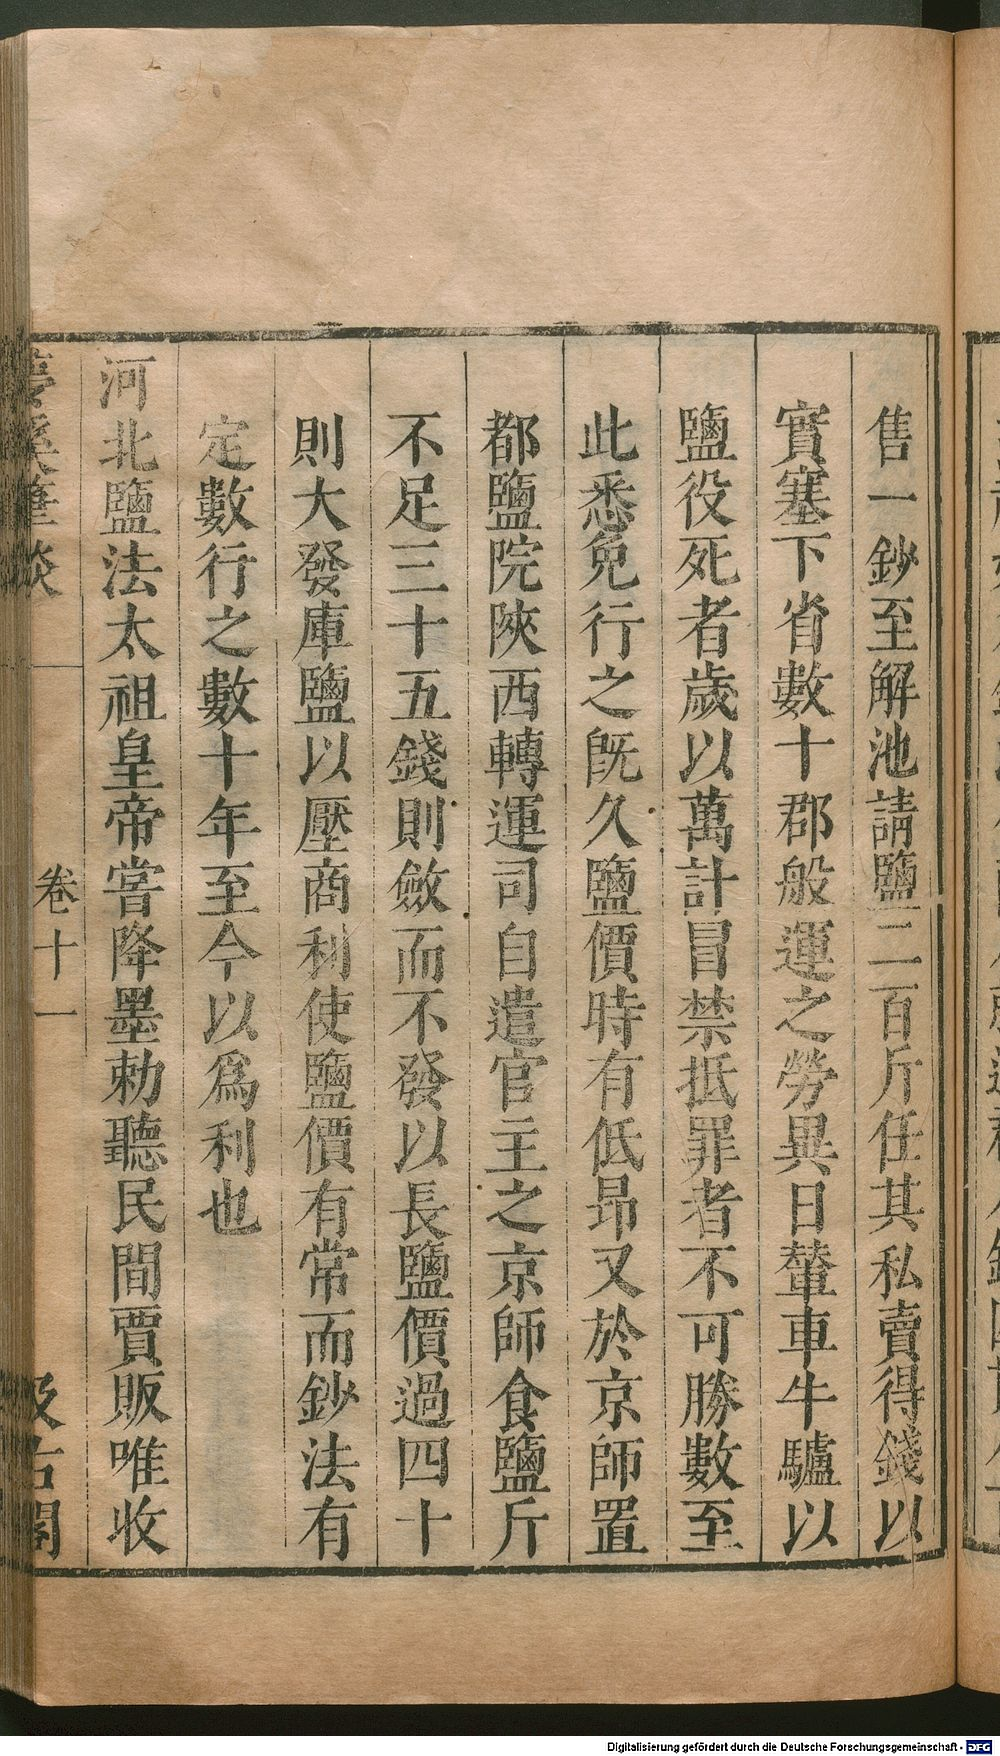 售一鈔至解池請鹽二百斤任其私賣得錢以
實塞下省數十郡般運之勞異日輦車牛驢以
鹽役死者歲以萬計冒禁抵罪者不可勝數至
此悉免行之旣久鹽價時有低昂又於京師置
都鹽院陝西轉運司自遣官主之京師食鹽斤
不足三十五錢則斂而不發以長鹽價過四十
則大發庫鹽以壓商利使鹽價有常而鈔法有
定數行之數十年至今以爲利也
河北鹽法太祖皇帝嘗降墨勅聽民間賈販唯收
夢溪筆談
卷十一
汲古閣
Digitalisierung gefördert durch die Deutsche Forschungsgemeinschaft - DFG